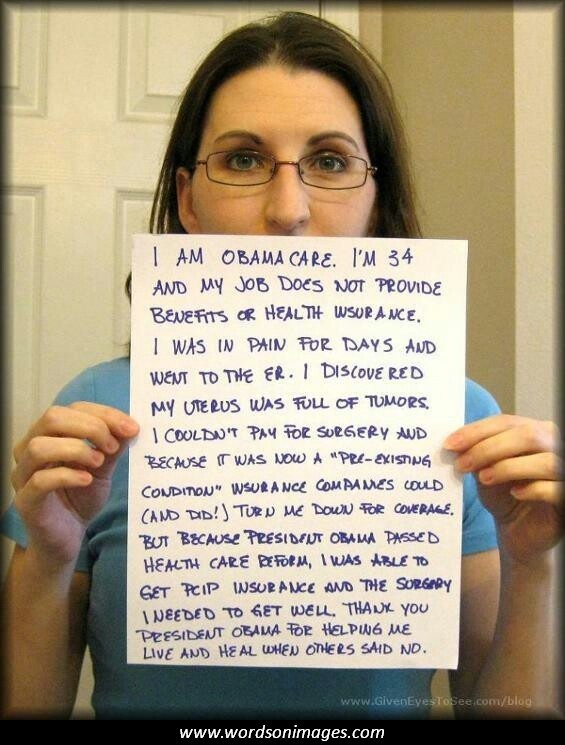 I AM OBAMA CARE. I'M 34
AND MY JOB DOES NOT PROVIDE
BENEFITS OR HEALTH INSURANCE.
I WAS IN PAIN FOR DAYS AND
WENT TO THE ER. I DISCOVERED
MY UTERUS WAS FULL OF TUMORS.
I COULDN'T PAY FOR SURGERY AND
BECAUSE IT WAS NOW A "PRE-EXISTING
CONDITION" INSURANCE COMPANIES COULD
(AND DID!) TURN ME DOWN FOR COVERAGE.
BUT BECAUSE PRESIDENT OBAMA PASSED
HEALTH CARE REFORM, I WAS ABLE TO
GET PCIP INSURANCE AND THE SURGERY
I NEEDED TO GET WELL. THANK YOU
PRESIDENT OBAMA FOR HELPING ME
LIVE AND HEAL WHEN OTHERS SAID NO.
www.GivenEyesToSee.com/blog
www.wordsonimages.com